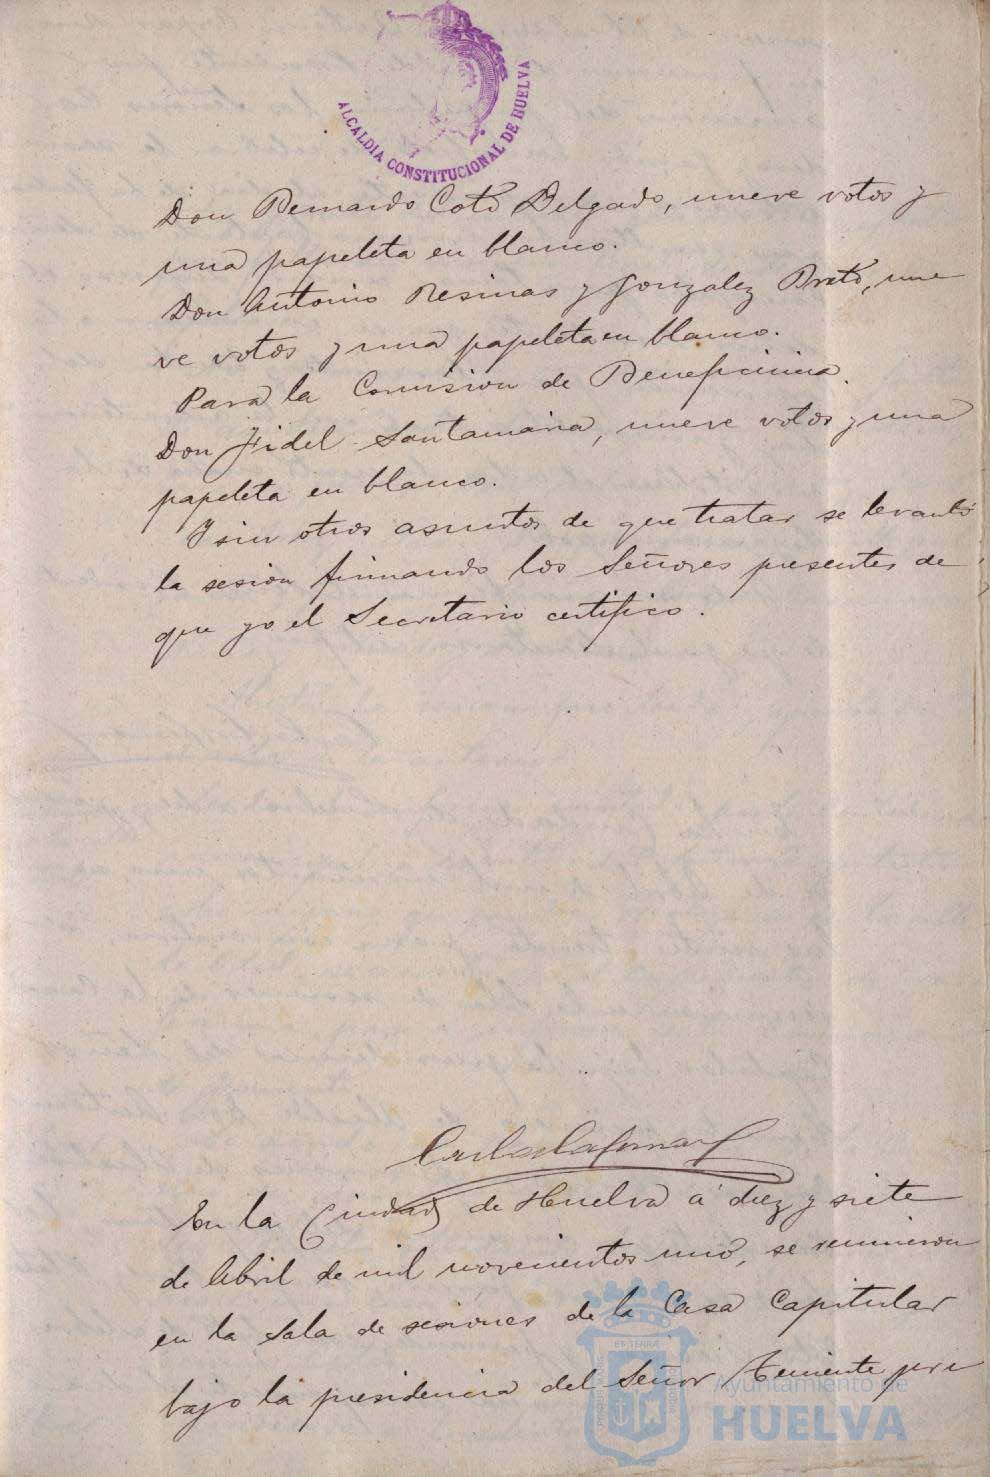 ALCALDIA CONSTITUCIONAL DE HUELVA
Don Bernardo Coto Delgado, nueve votos y
una papeleta en blanco.
Don Antonio Resinas y Gonzalez Prieto, nue
ve votos y una papeleta en blanco.
Para la Comision de Beneficincia.
Don Fidel Santamaria, nueve votos y una
papeleta en blanco.
Y sin otros asuntos de que tratar se levantó
la sesion firmando los Señores presentes de
que yo el Secretario certifico.
En la Ciudad de Huelva á diez y siete
de Abril de mil novecientos uno, se reunieron
en la Sala de sesiones de la Casa Capitular
bajo la presidencia del Señor Teniente pri
Ayuntamiento de
HUELVA